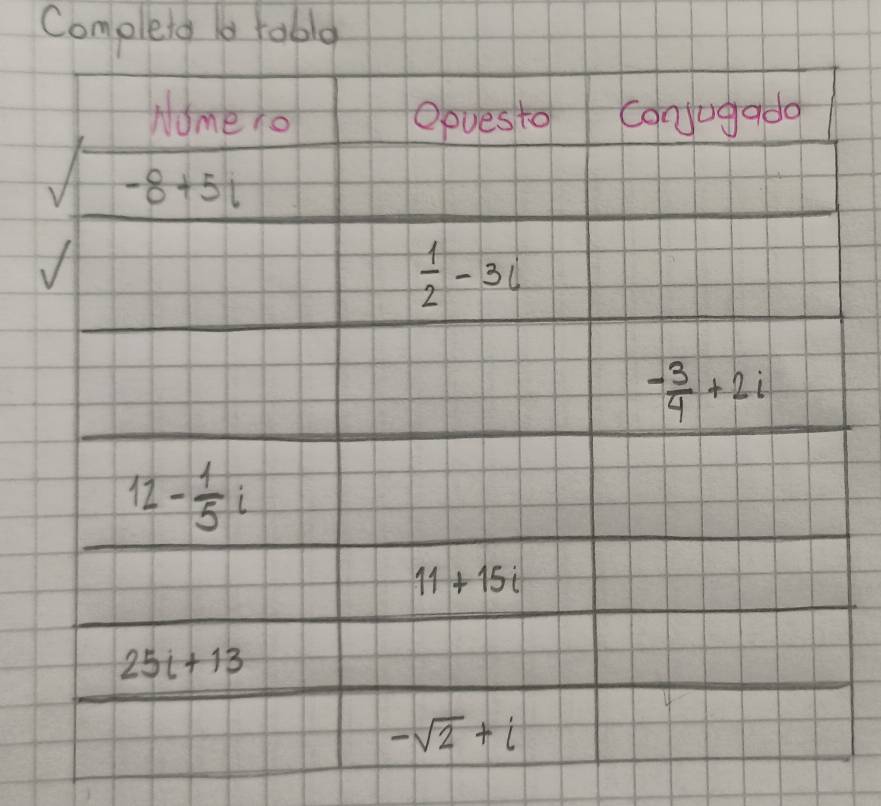 Completa la tabla
Número Opuesto Conjugado
√ -8+5i
√ 1/2 - 3i
-3/4 + 2i
12 - 1/5 i
11 + 15i
25i + 13
-√2 + i